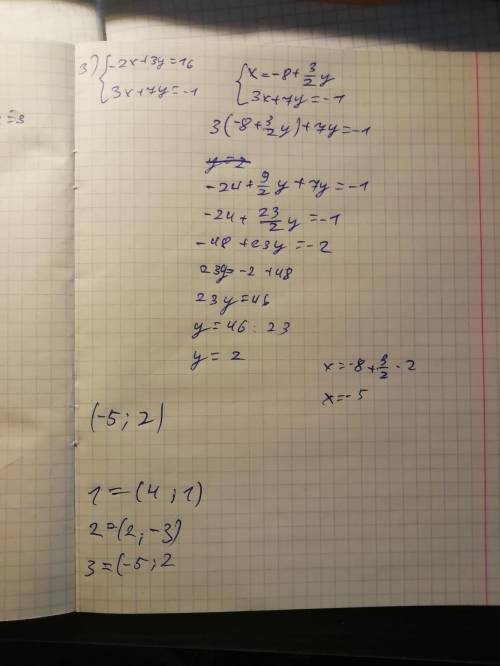 3) { -2x+3y=16
3x+7y=-1
{ x=-8+3/2y
3x+7y=-1
3(-8+3/2y)+7y=-1
y=2
-24+9/2y+7y=-1
-24+23/2y=-1
-48+23y=-2
23y=-2+48
23y=46
y=46:23
y=2
x=-8+3/2·2
x=-5
(-5;2)
1=(4;1)
2=(2;-3)
3=(-5;2